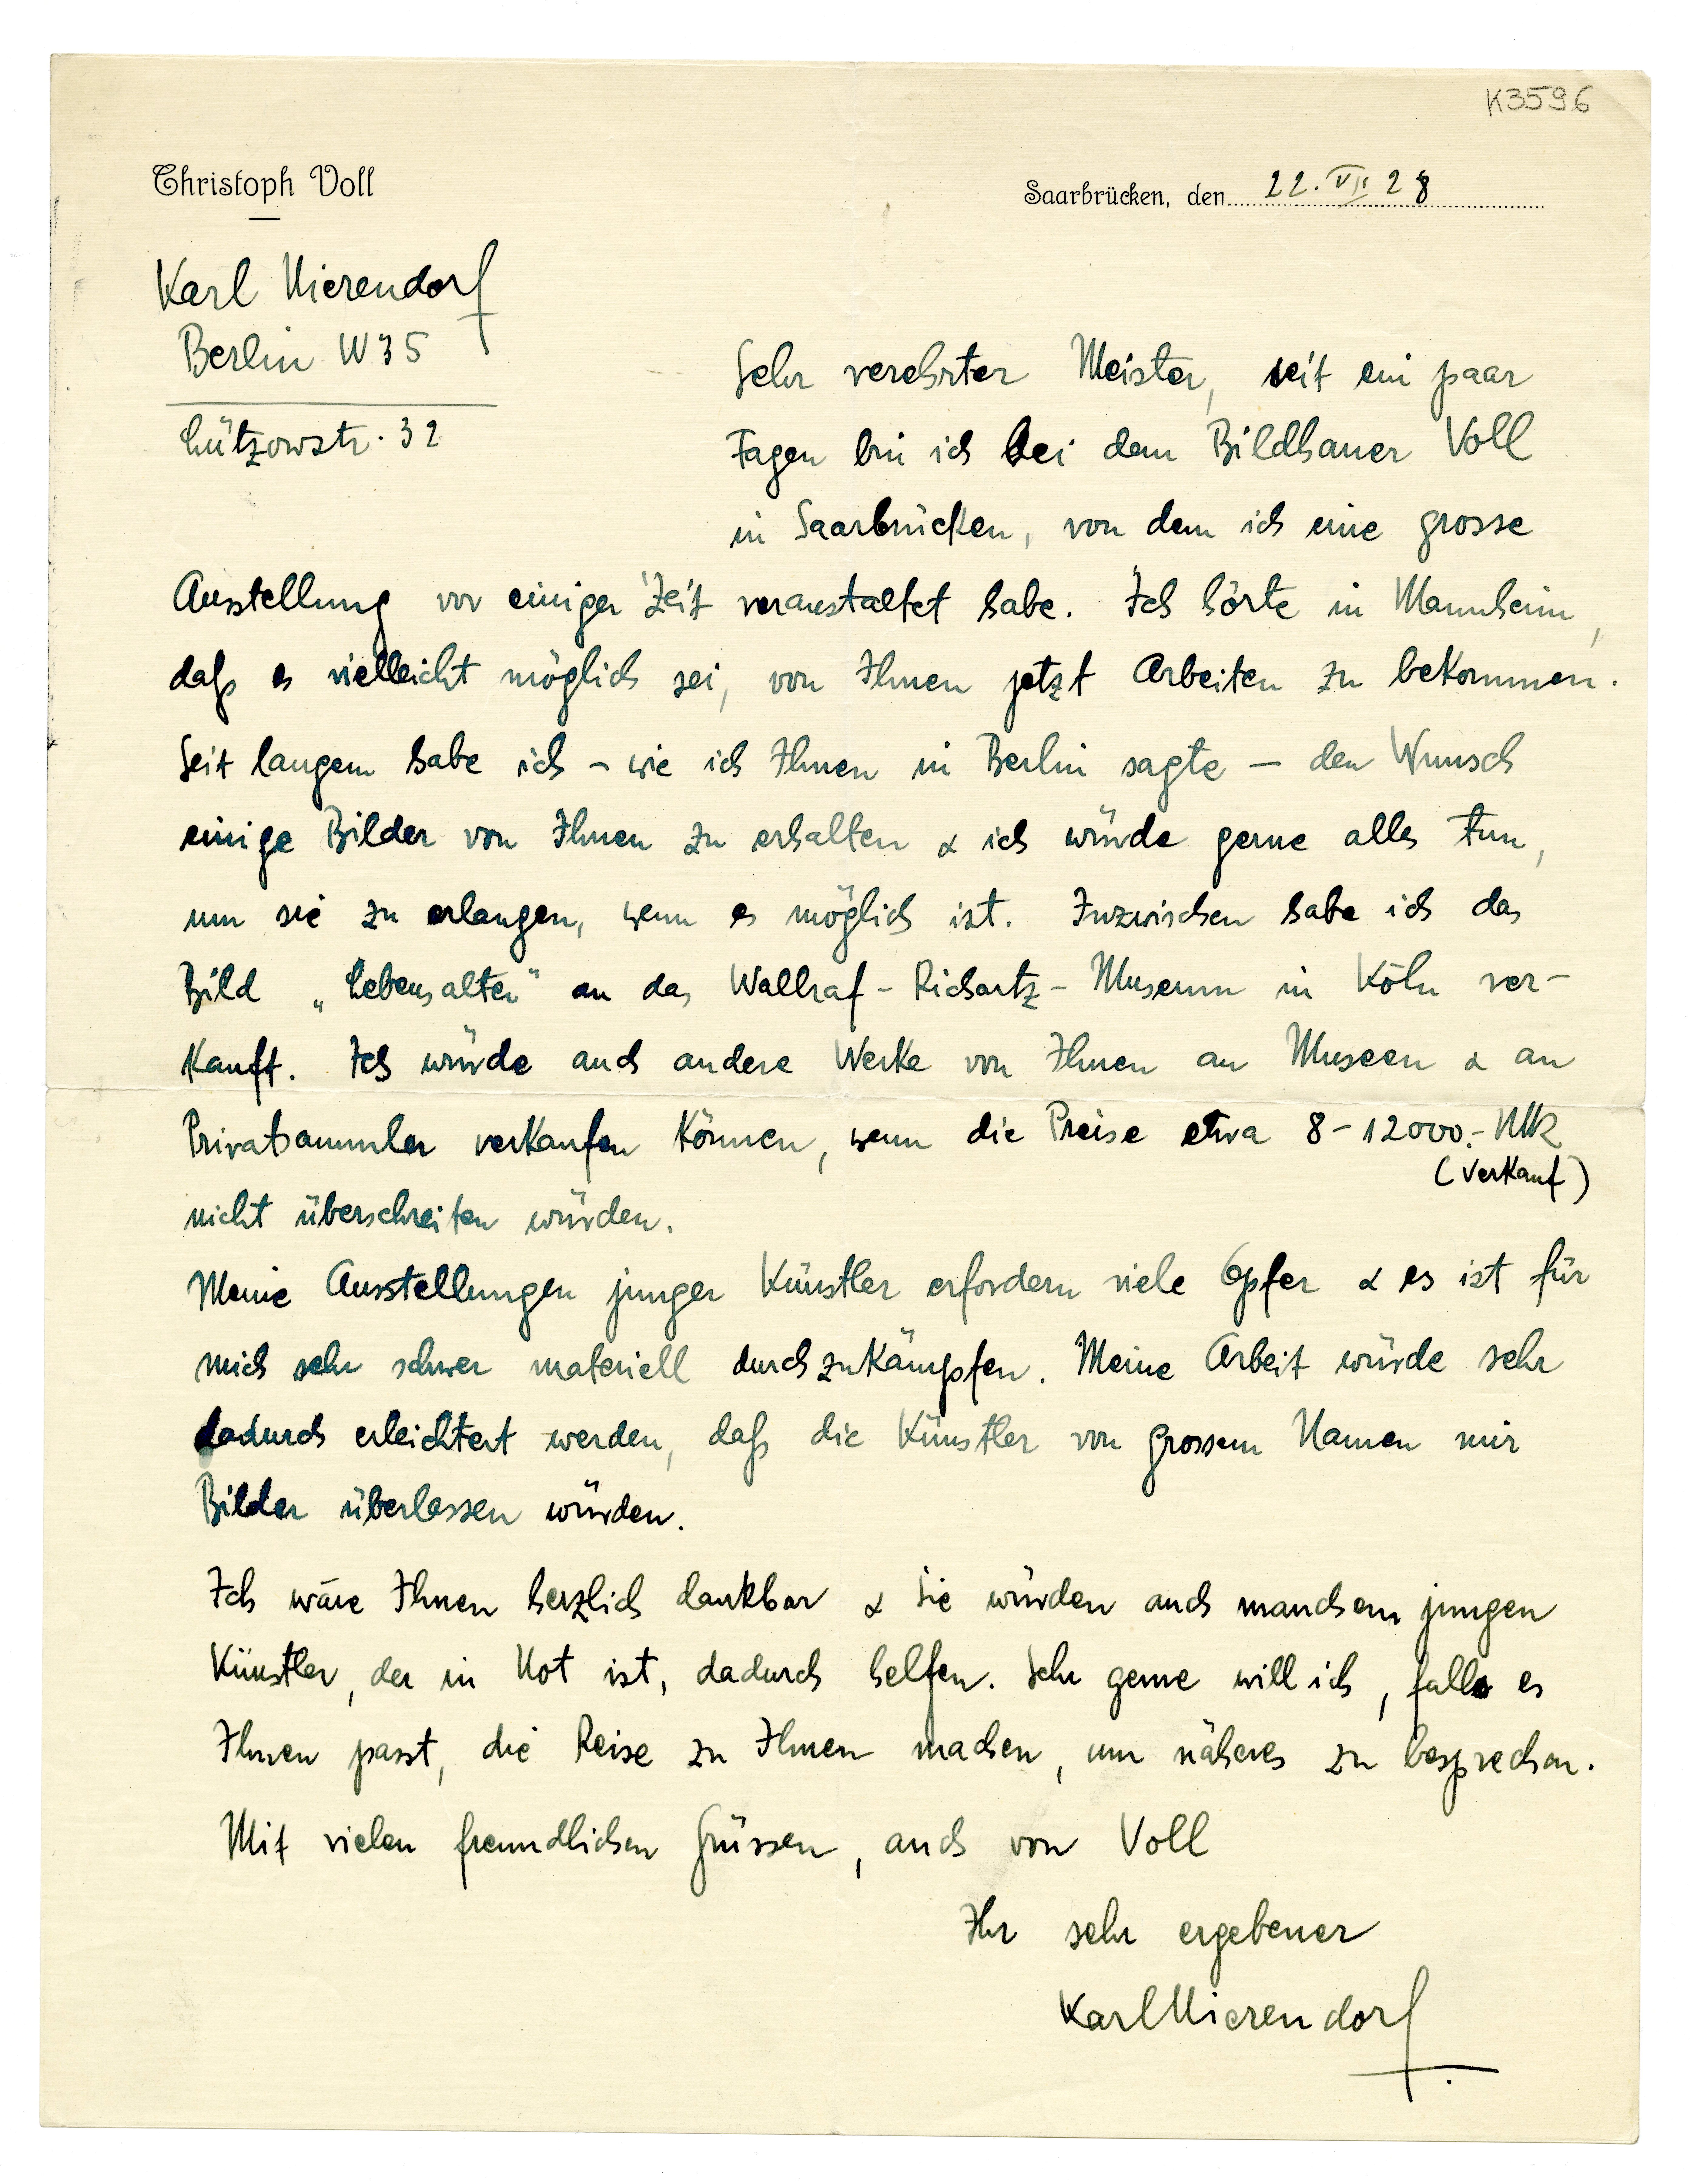 K3596
Christoph Voll
Saarbrücken, den 22. VII 28
Karl Nierendorf
Berlin W 35
Lützowstr. 32
Sehr verehrter Meister, seit ein paar
Tagen bin ich bei dem Bildhauer Voll
in Saarbrücken, von dem ich eine grosse
Ausstellung vor einiger Zeit veranstaltet habe. Ich hörte in Mannheim,
daß es vielleicht möglich sei, von Ihnen jetzt Arbeiten zu bekommen.
Seit langem habe ich – wie ich Ihnen in Berlin sagte – den Wunsch
einige Bilder von Ihnen zu erhalten & ich würde gerne alles tun,
um sie zu erlangen, wenn es möglich ist. Inzwischen habe ich das
Bild „Lebensalter" an das Wallraf-Richartz-Museum in Köln ver-
kauft. Ich würde auch andere Werke von Ihnen an Museen & an
Privatsammler verkaufen können, wenn die Preise etwa 8–12000.- Mk
(Verkauf)
nicht überschreiten würden.
Meine Ausstellungen junger Künstler erfordern viele Opfer & es ist für
mich sehr schwer materiell durchzukämpfen. Meine Arbeit würde sehr
dadurch erleichtert werden, daß die Künstler von grossem Namen mir
Bilder überlassen würden.
Ich wäre Ihnen herzlich dankbar & Sie würden auch manchem jungen
Künstler, der in Not ist, dadurch helfen. Sehr gerne will ich, falls es
Ihnen passt, die Reise zu Ihnen machen, um näheres zu besprechen.
Mit vielen freundlichen Grüssen, auch von Voll
Ihr sehr ergebener
Karl Nierendorf